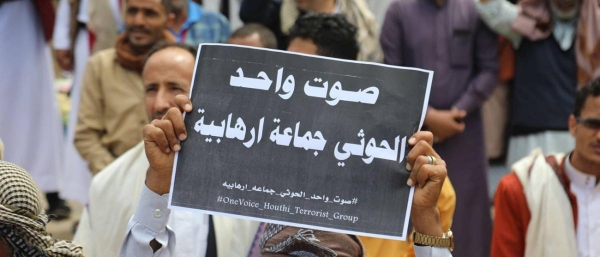 صوت واحد
الحوثي جماعة ارهابية
#صوت_واحد_الحوثي_جماعه_ارهابيه
#OneVoice_Houthi_Terrorist_Group